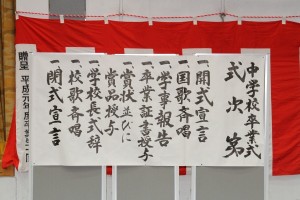 中学校卒業式
式次第
一開式宣言
一国歌斉唱
一学事報告
一卒業証書授与
一賞状並びに
賞品授与
一学校長式辞
一校歌斉唱
一閉式宣言
贈呈 平成